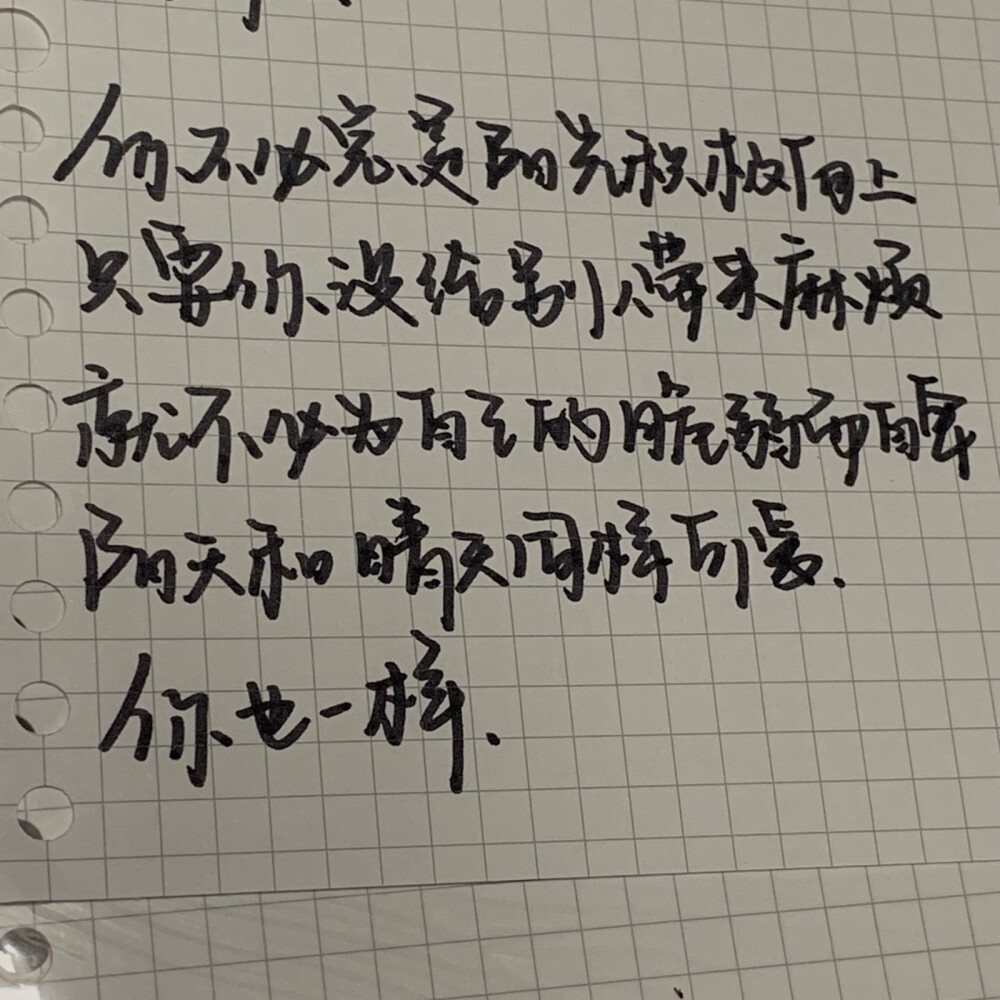 你不必完美阳光积极向上
只要你没给别人带来麻烦
就不必为自己的脆弱而自卑
阴天和晴天同样可爱.
你也一样.